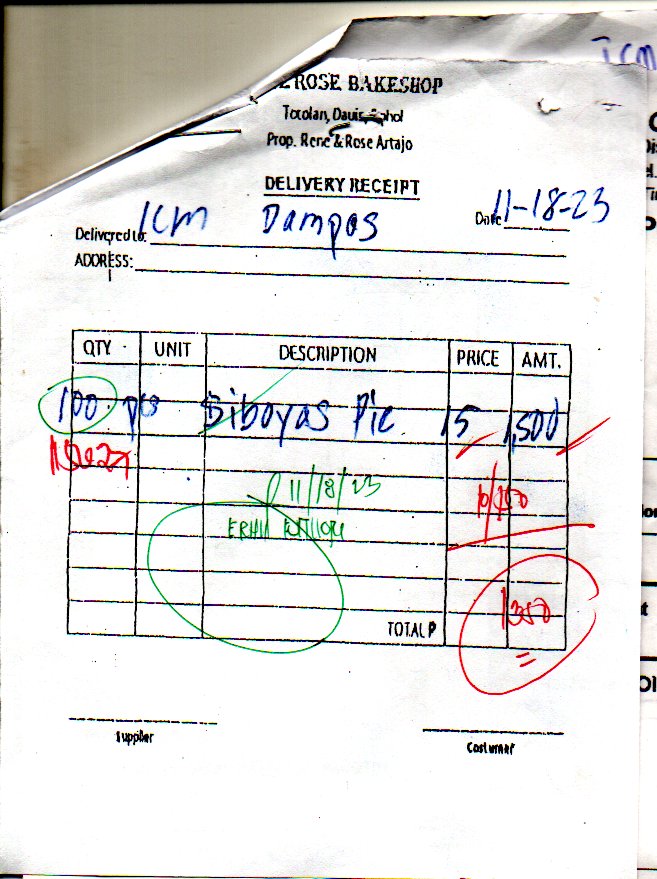 ICM
ROSE BAKESHOP
Totolan, Dauis, Bohol
Prop. Rene & Rose Artajo
DELIVERY RECEIPT
Delivered to: ICM Dampas Date 11-18-23
ADDRESS:
QTY UNIT DESCRIPTION PRICE AMT.
100 pcs Siboyas Pie 15 1,500
11/18/23
1350
TOTAL P
Supplier
Costumer